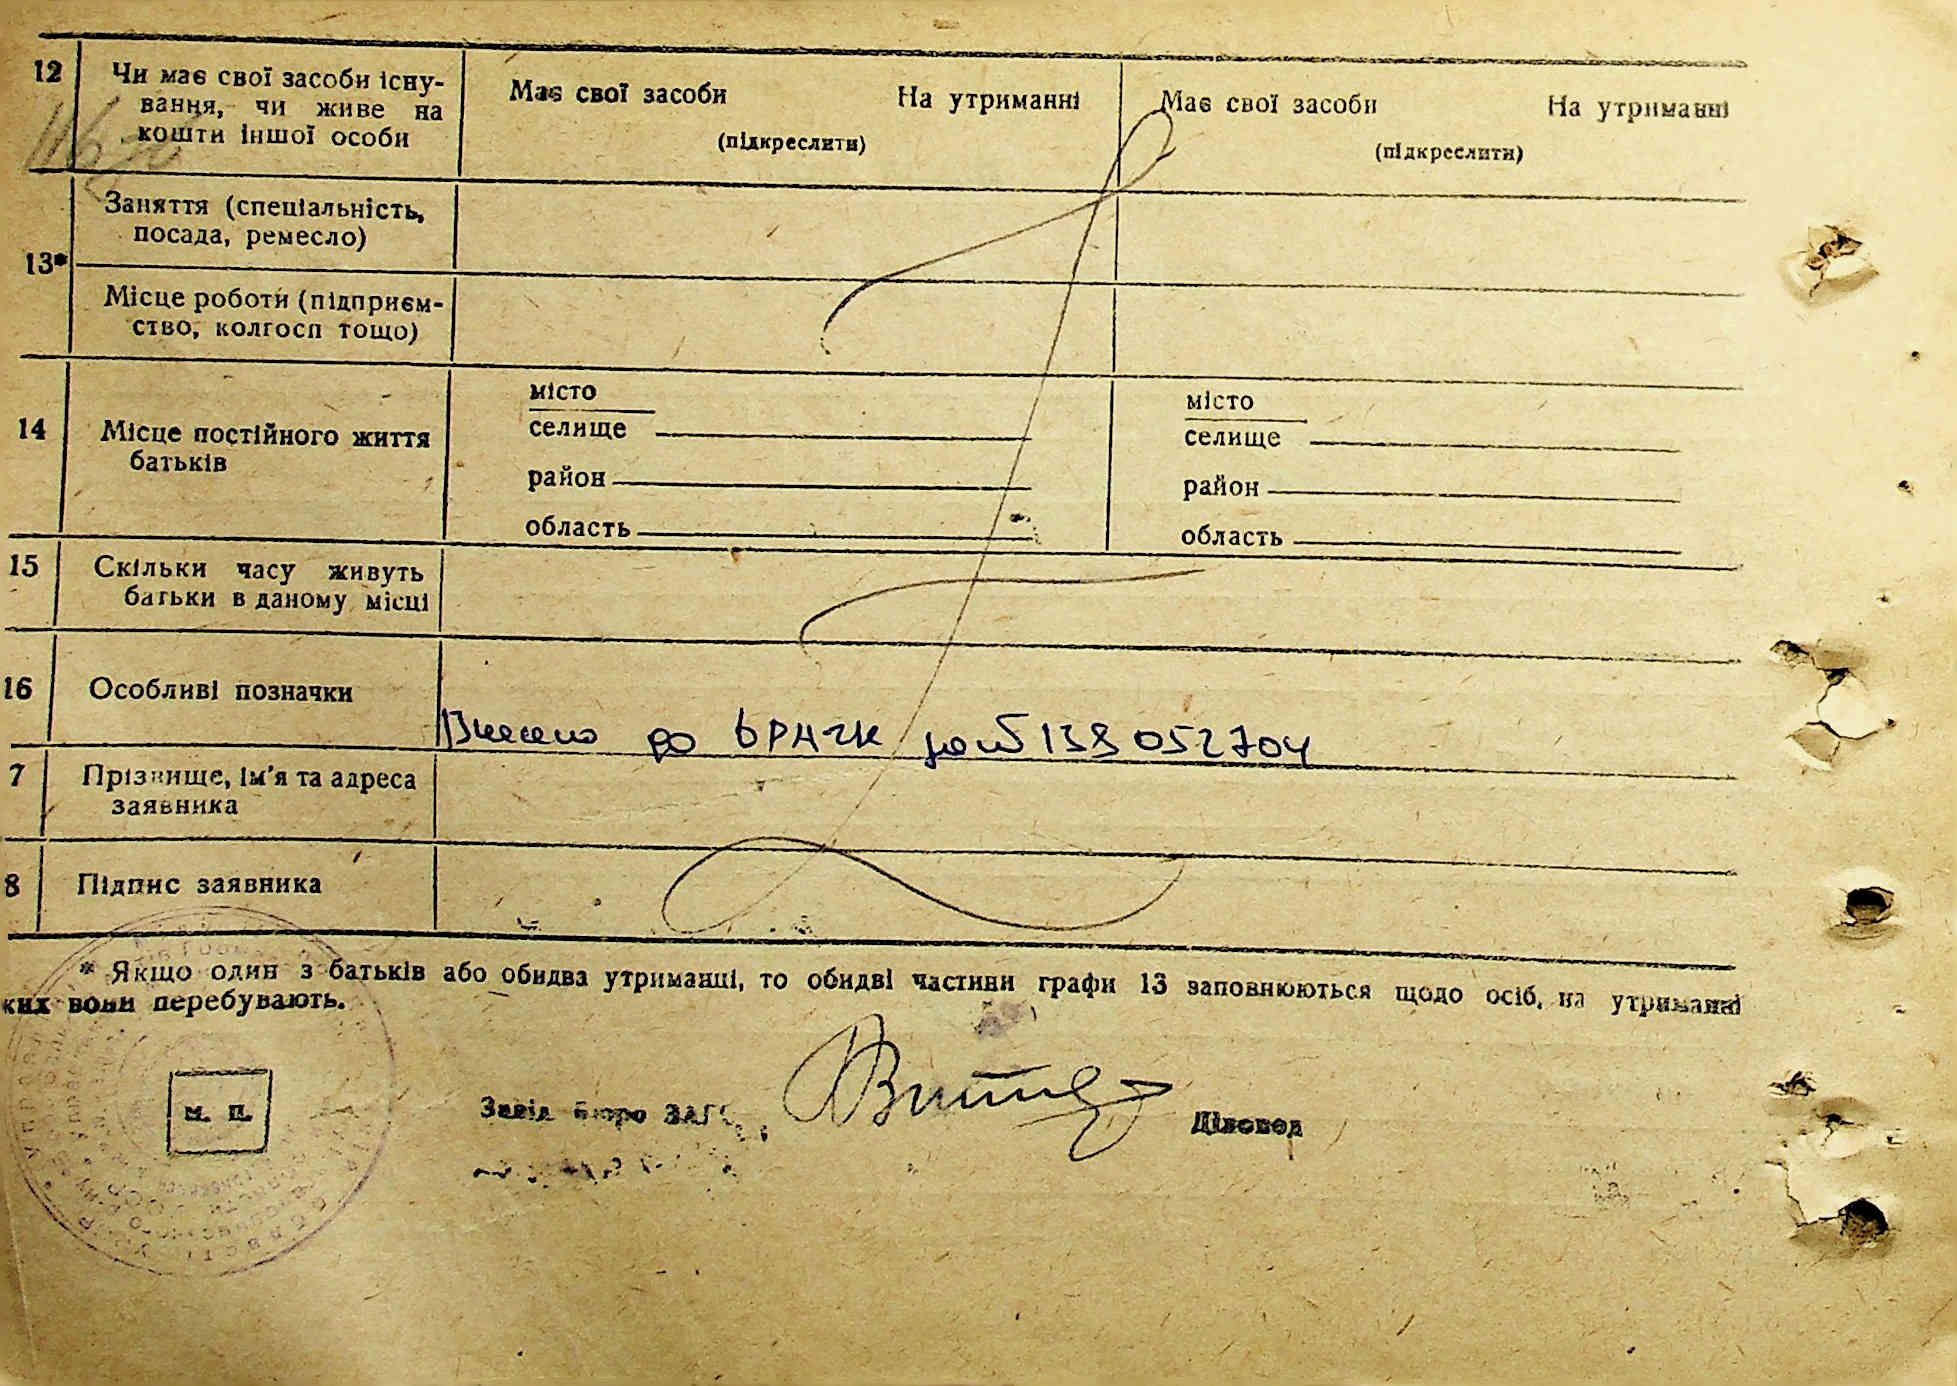 12 Чи має свої засоби існу-
вання, чи живе на
кошти іншої особи
Має свої засоби На утриманні
(підкреслити)
Має свої засоби На утриманні
(підкреслити)
13* Заняття (спеціальність,
посада, ремесло)
Місце роботи (підприєм-
ство, колгосп тощо)
14 Місце постійного життя
батьків
місто
селище
район
область
місто
селище
район
область
15 Скільки часу живуть
батьки в даному місці
16 Особливі позначки
Внесено до ДРАЦСГ за № 138 052704
7 Прізвище, ім'я та адреса
заявника
8 Підпис заявника
* Якщо один з батьків або обидва утриманці, то обидві частини графи 13 заповнюються щодо осіб, на утриманні
ких вони перебувають.
м. п.
Завід бюро ЗАГС
Діловод